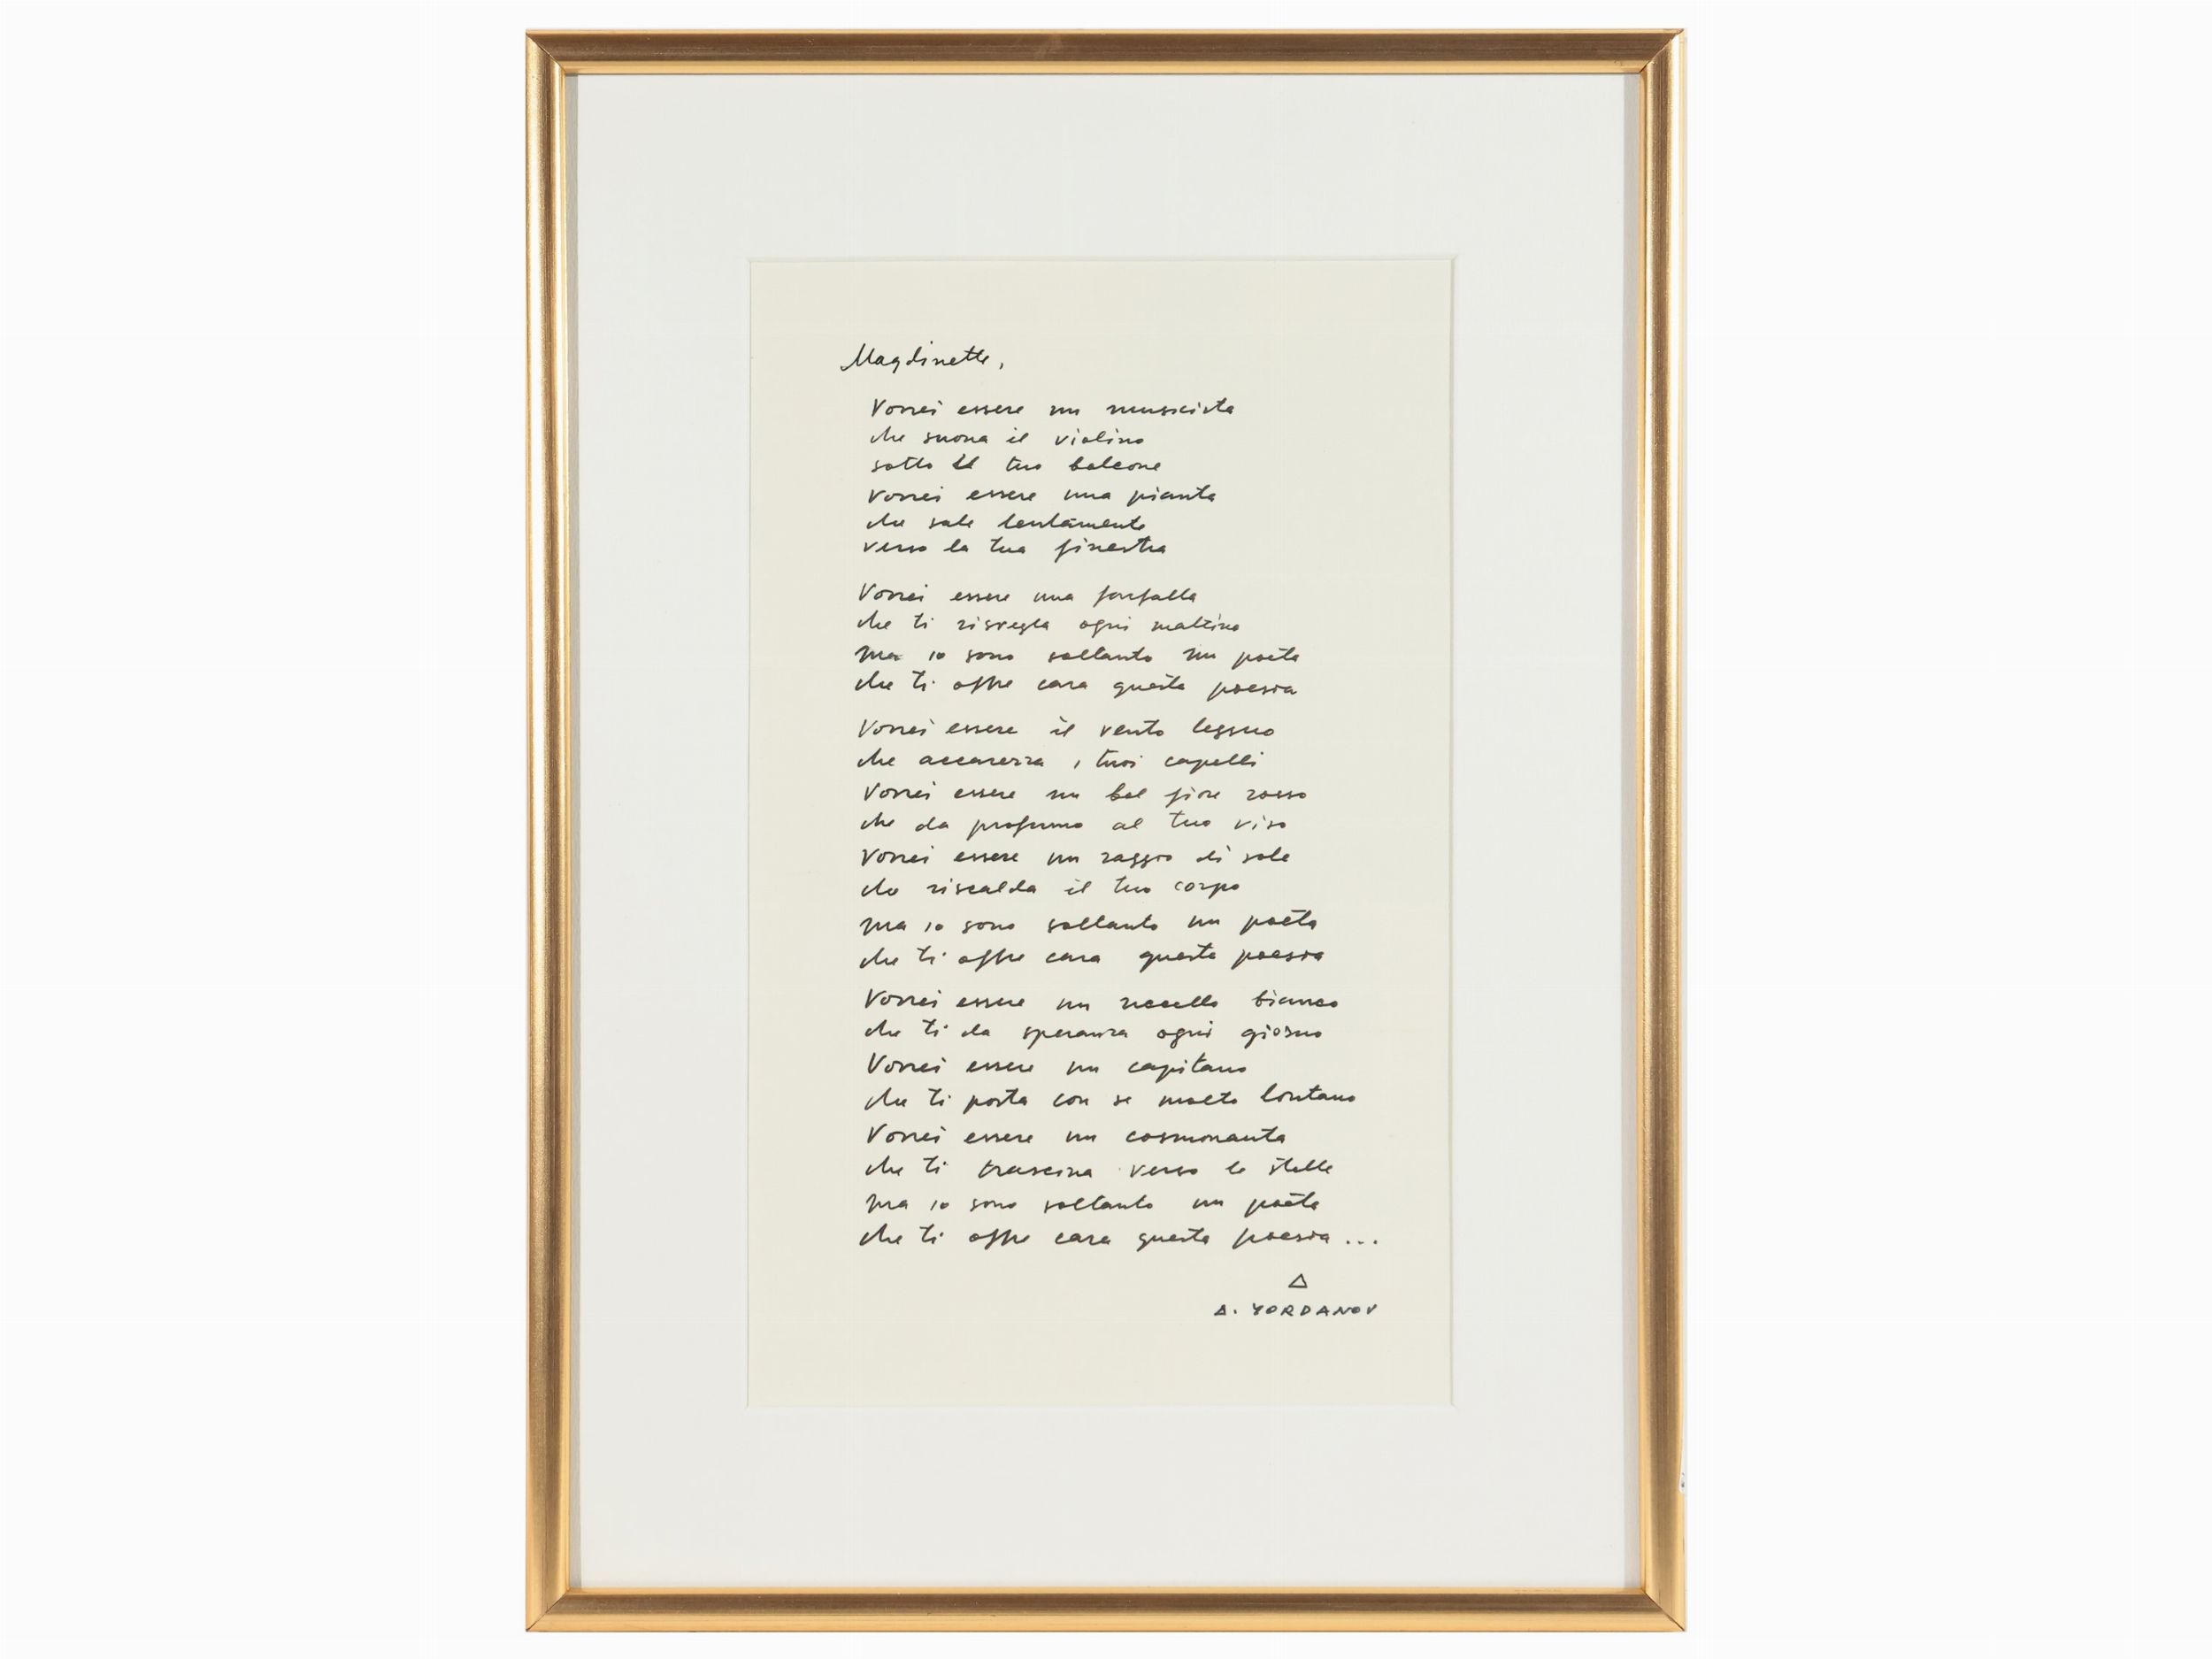 Magdinette,
Vorrei essere un musicista
che suona il violino
sotto il tuo balcone
Vorrei essere una pianta
che sale lentamente
verso la tua finestra
Vorrei essere una farfalla
che ti risvegla ogni mattino
ma io sono soltanto un poeta
che ti offre cara questa poesia
Vorrei essere il vento leggero
che accarezza i tuoi capelli
Vorrei essere un bel fiore rosso
che da profumo al tuo viso
Vorrei essere un raggio di sole
che riscalda il tuo corpo
ma io sono soltanto un poeta
che ti offre cara questa poesia
Vorrei essere un uccello bianco
che ti da speranza ogni giorno
Vorrei essere un capitano
che ti porta con se molto lontano
Vorrei essere un cosmonauta
che ti trascina verso le stelle
ma io sono soltanto un poeta
che ti offre cara questa poesia...
Δ
Δ. YORDANOV